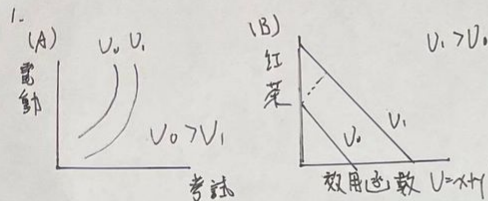 1.
(A)
U₀ U₁
電動
U₀ > U₁
考試
(B)
U₁ > U₀
红茶
U₀
U₁
效用函数 U=x+y